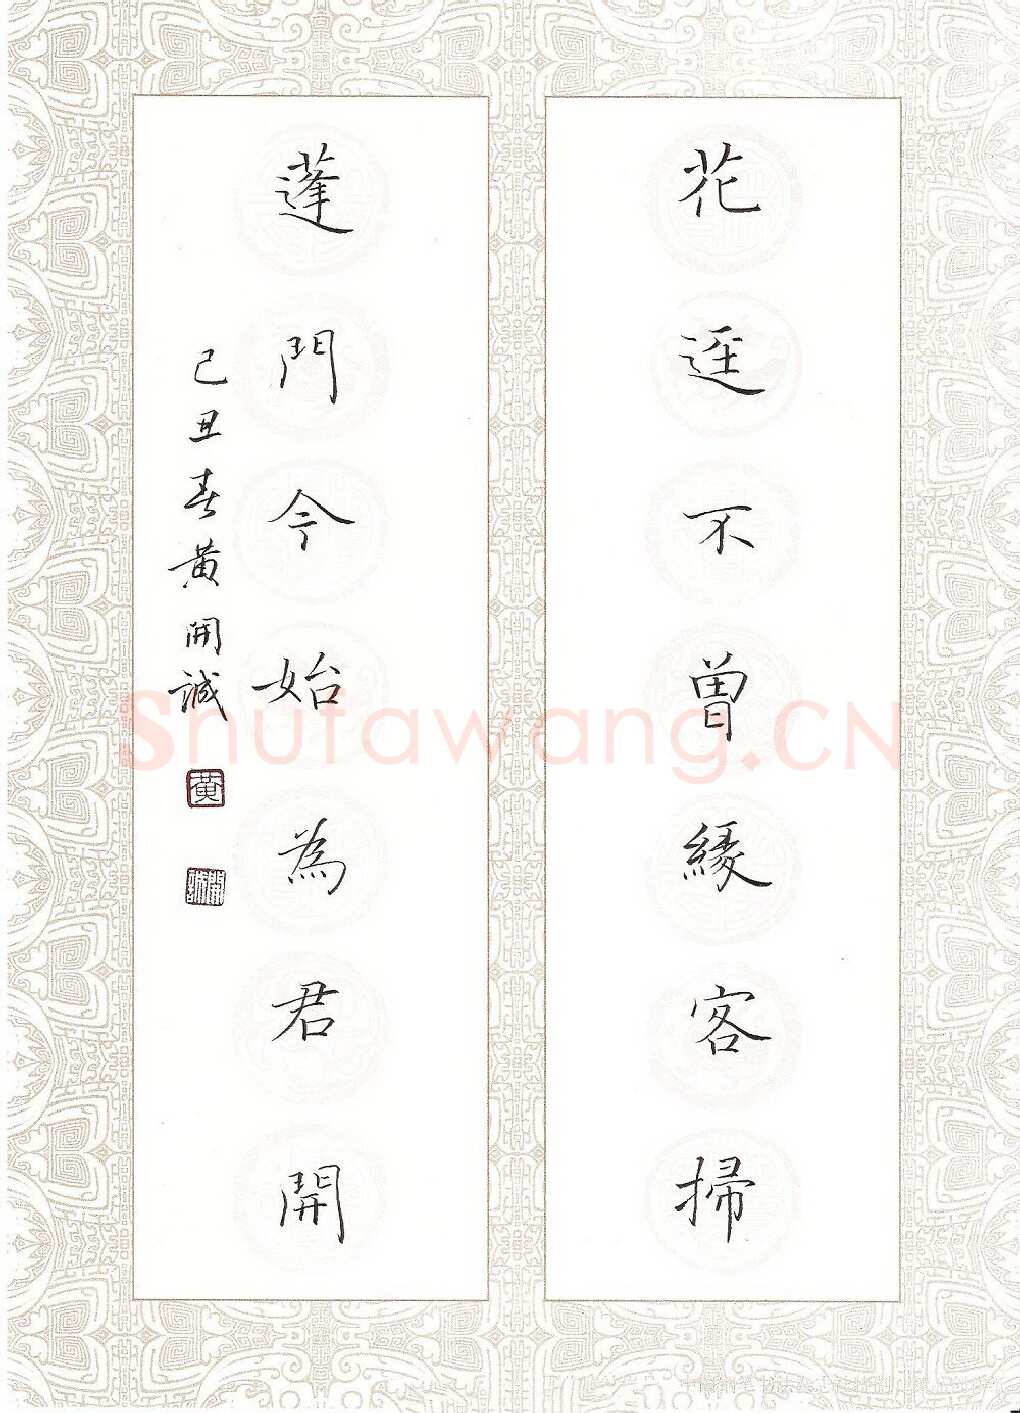 花逕不曾緣客掃
蓬門今始為君開
己丑春黃開誠
黃
開誠
Shufawang.CN